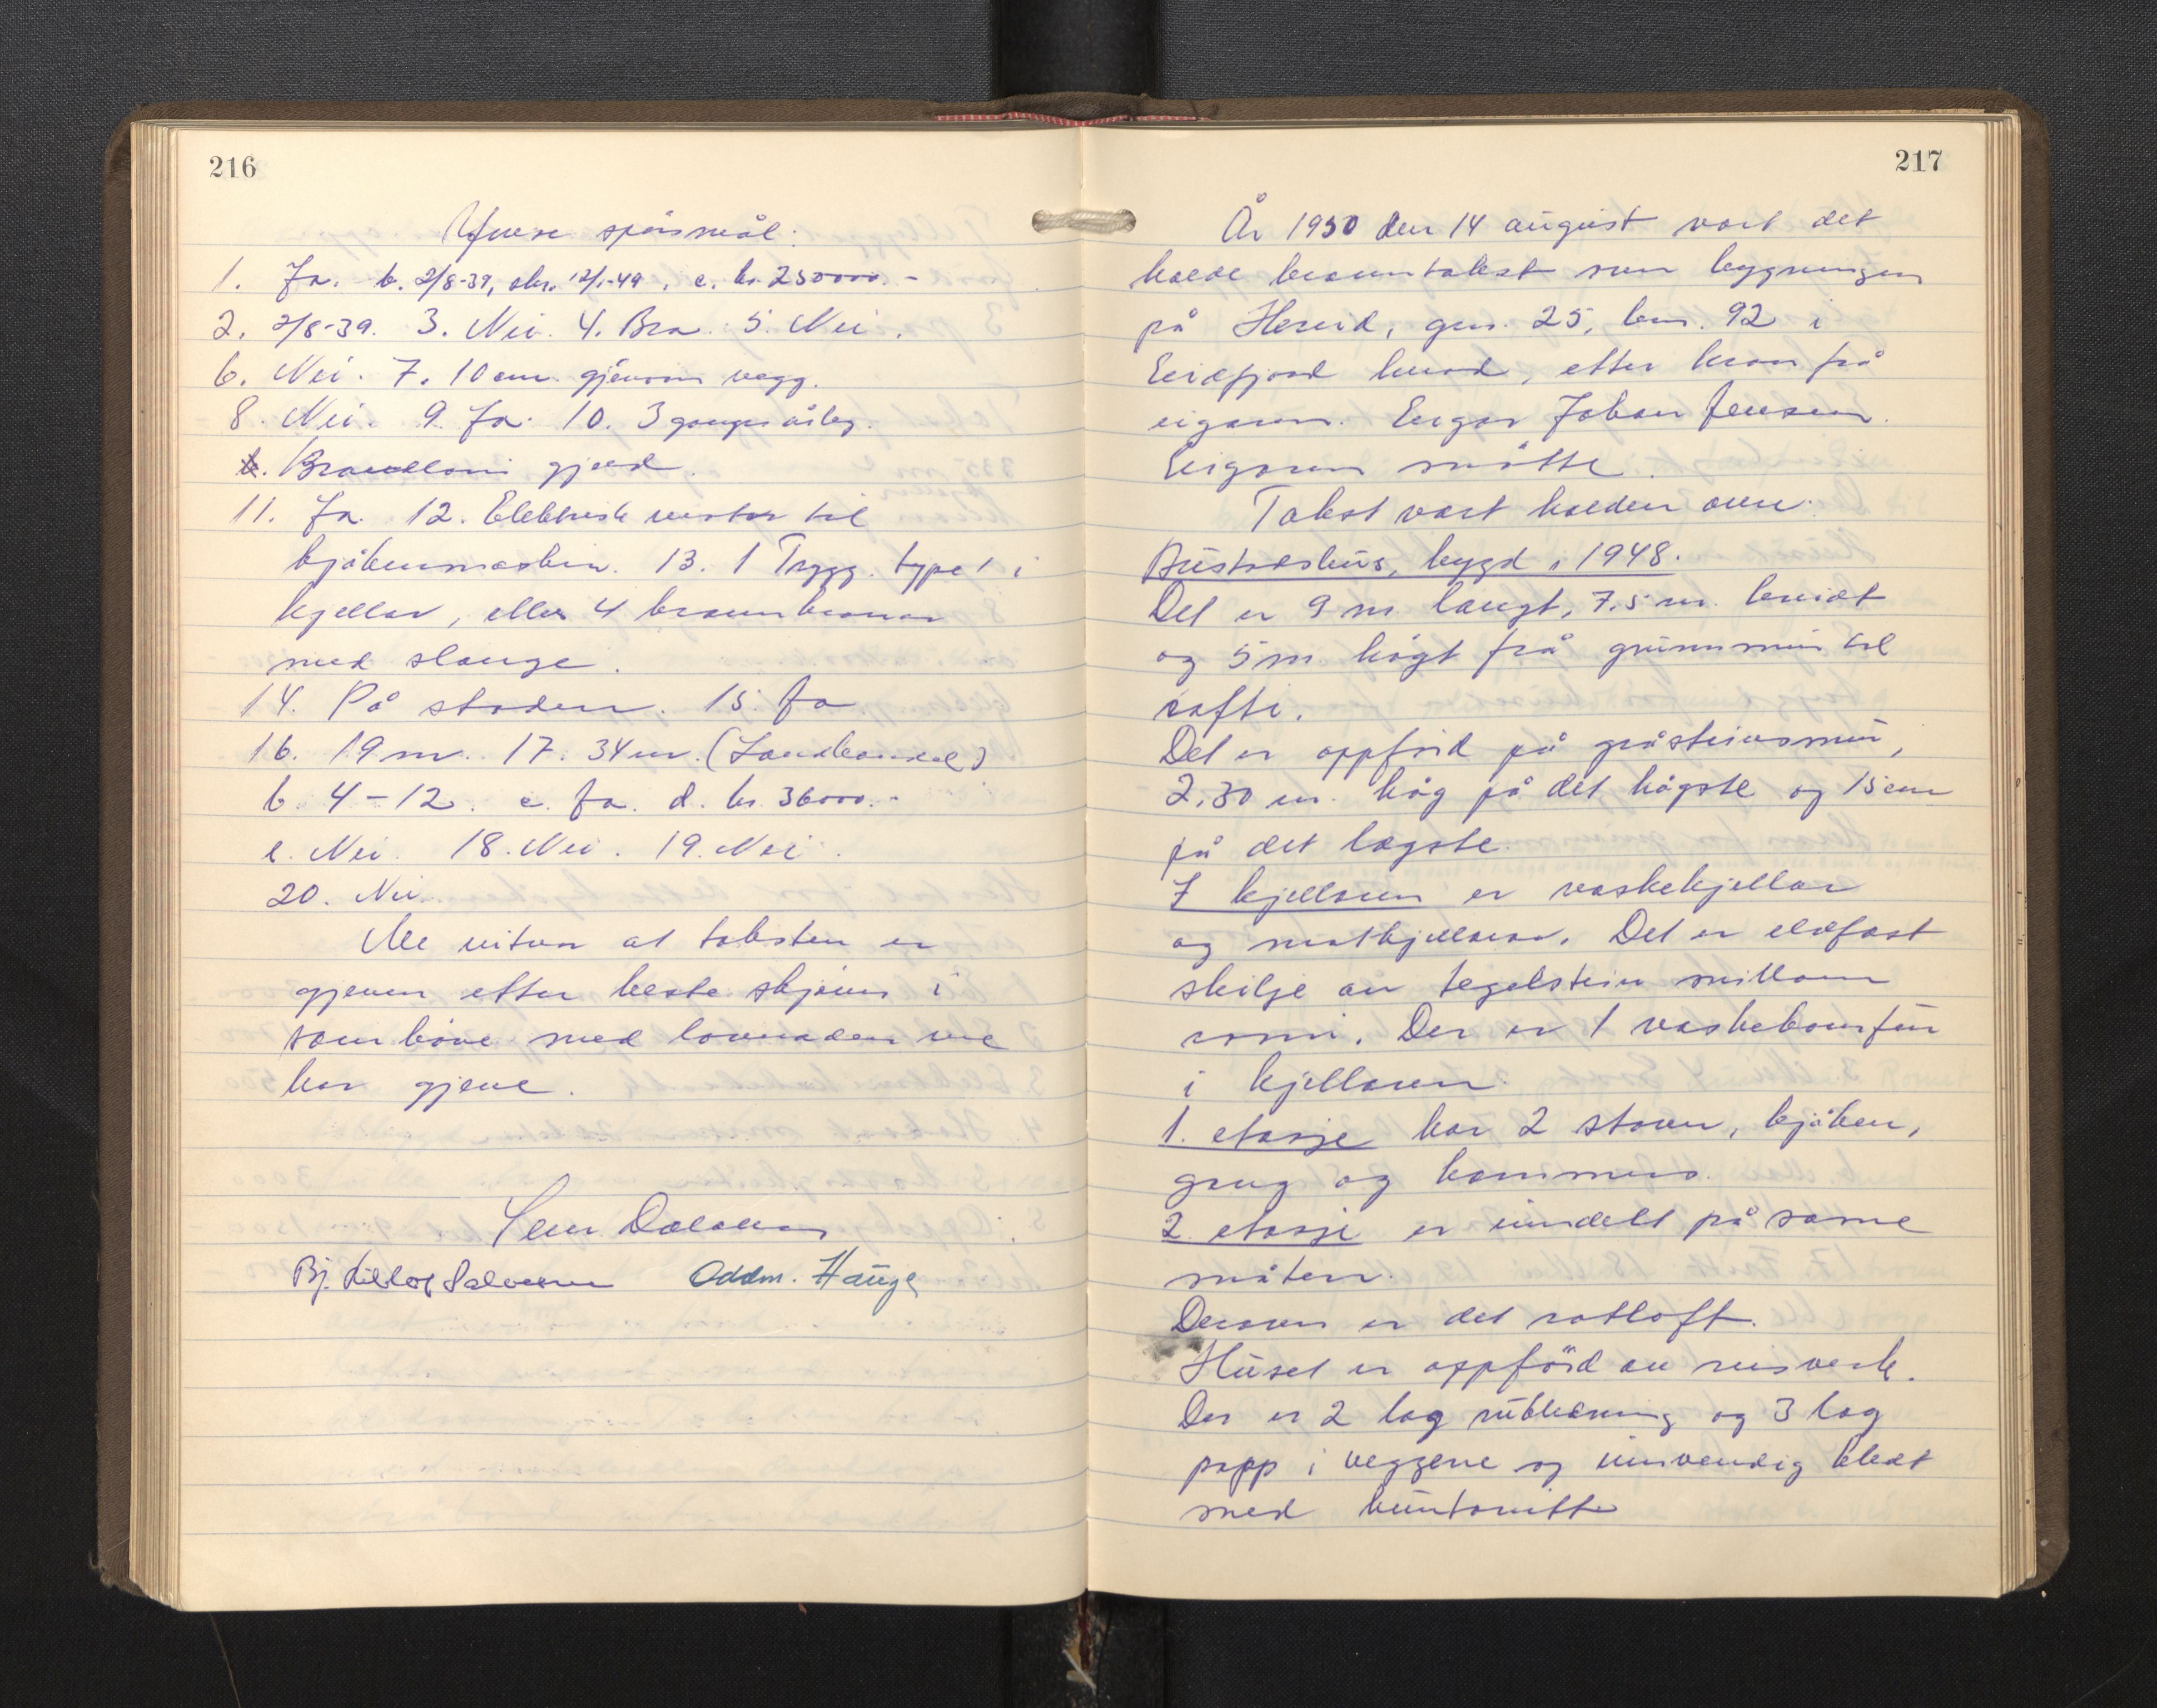 216
Ymse spörsmål:
1. Ja. b. 2/8-39, 12/1-49, c. kr. 250000.-
2. 2/8-39. 3. Nei. 4. Bra. 5. Nei.
6. Nei. 7. 10 cm. gjenom vegg.
8. Nei. 9. Ja. 10. 3 gonger årleg.
b. gjeld.
11. Ja. 12. Elektrisk motor til
kjökenmaskin. 13. 1 Trygg. type 1 i
kjellar, elles 4 brannkranar
med slange.
14. På staden. 15. Ja.
16. 19 m. 17. 34 m. (Landhandel)
b. 4-12. c. Ja. d. kr. 36000.-
e. Nei. 18. Nei. 19. Nei.
20. Nei.
Me vitnar at taksten er
gjeven etter beste skjönn i
samhöve med lovnaden me
har gjeve.
Bj. Oddm. Hauge
217
År 1950 den 14 august vart det
halde branntakst over bygningen
på Hereid, gnr. 25, bnr. 92 i
Eidfjord herad, etter krav frå
eigaren. Johan Jensen.
Eigaren møtte.
Takst vart halden over:
Austreshus, bygd i 1948.
Det er 9 m. langt, 7.5 m. breidt
og 5 m. högt frå grunnmur til
rafti.
Det er oppförd på gråsteinsmur,
2.30 m. høg på det högste og 15 cm
på det lægste.
I kjellaren er vaskekjellar
og matkjellarar. Det er eldfast
skilje av tegelstein millom
romi. Der er 1 vaskekomfur
i kjellaren.
1. etasje har 2 stover, kjöken,
gang og kammers.
2. etasje er inndelt på same
måten.
Derover er det rotloft.
Huset er oppförd av reisverk.
Der er 2 lag rubledning og 3 lag
papp i veggene og innvendig kledt
med huntonitt